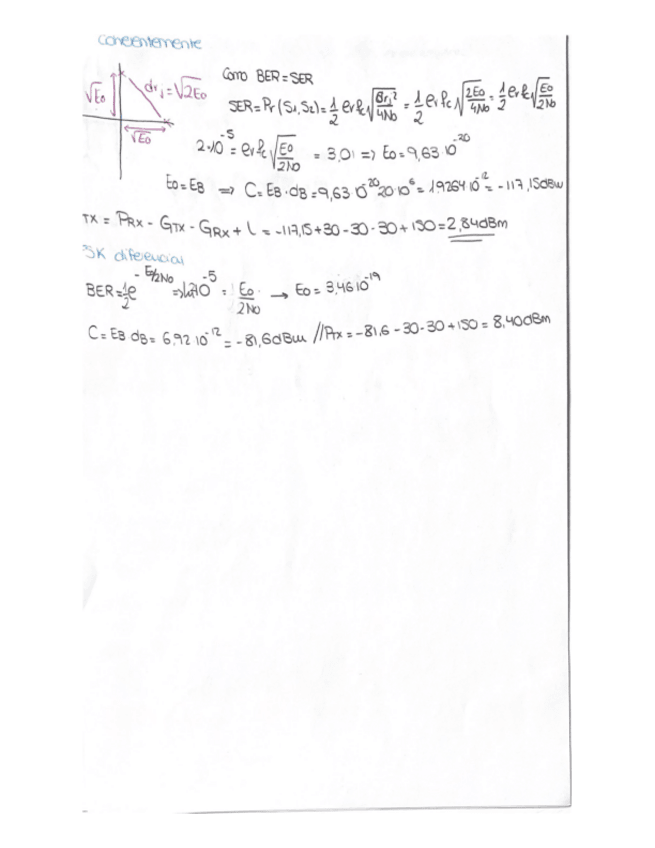 coherentemente
Como BER=SER
√Eo dr,j=√2Eo
√Eo
SER=Pr(S₁,S₂)=1/2 erfc √(dr,j²/4No) = 1/2 erfc √(2Eo/4No) = 1/2 erfc √(Eo/2No)
2·10^-5 = erfc √(Eo/2No) = 3,01 => Eo=9,63 10^-20
Eo=EB => C=EB·dB=9,63 10^-20 20·10^6 = 1,9264 10^-12 = -117,15dBw
TX = PRX - GTX - GRX + L = -117,15+30-30-30+150=2,84dBm
SK diferencial
BER=1/2 e^-E/2No => ln 2·10^-5 = Eo/2No → Eo=3,46 10^-19
C=EB dB= 6,92·10^-12 = -81,6dBm // Ptx=-81,6-30-30+150=8,40dBm